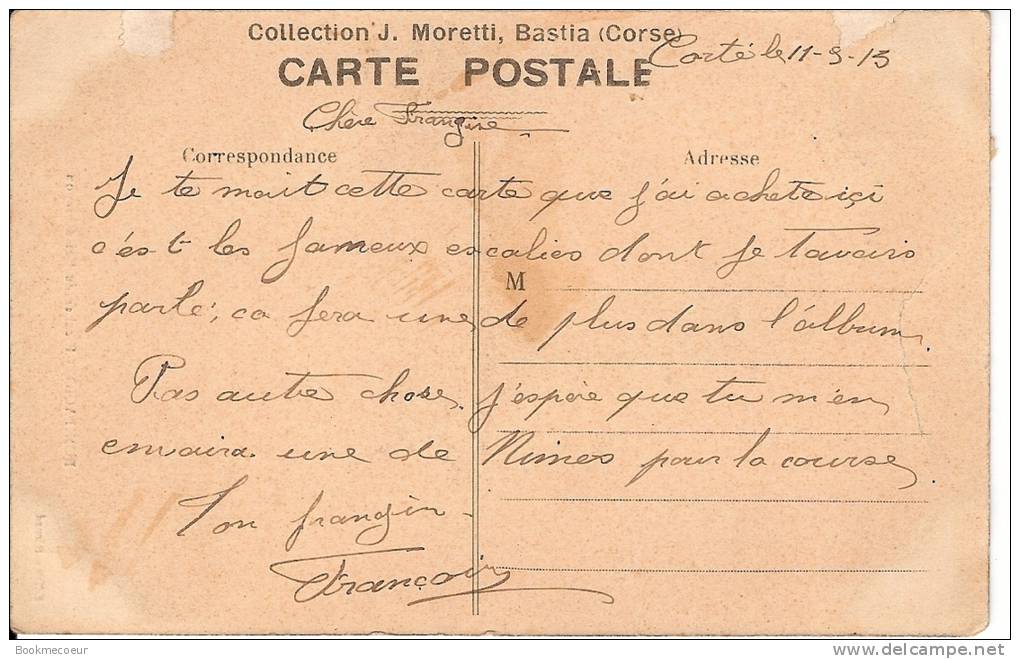 Collection J. Moretti, Bastia (Corse)
Corté le 11-9-13
CARTE POSTALE
Chère Frangine
Correspondance
Adresse
Je te mait cette carte que j'ai acheté içi
c'és-t les fameux escaliés dont je tavais
parlé; ca fera une de plus dans l'álbum.
M
Pas autre chose. j'espère que tu m'en
envaira une de Nimes pour la course
Ton frangin
François
Bookmecoeur
www.delcampe.net